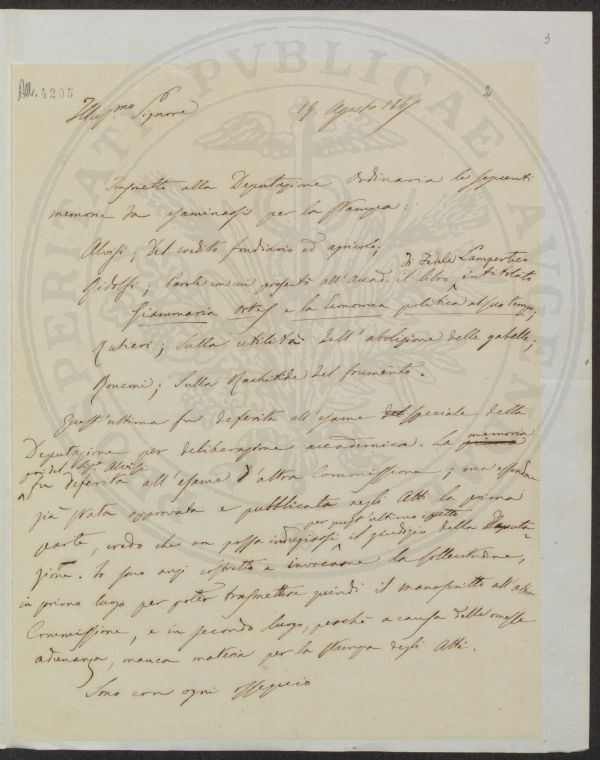 3
All. 4205
2
Illuss.mo Signore
19. Agosto 186
Trasmetto alla Deputazione ordinaria le seguenti
memorie da esaminarsi per la stampa:
Alvisi; Del credito fondiario ed agricolo;
di Fedele Lampertico
Ridolfi; Parole in cui presentò all'Accad. il libro intitolato
Giammaria Ortes e la Economia politica al suo tempo;
sulla utilità dell'abolizione delle gabelle;
Ronconi; sulla Rachitide del frumento.
Quest'ultima fu deferita all'esame speciale della
Deputazione per deliberazione accademica. La memoria
poi del Sig.r Alvisi
fu deferita all'esame d'altra Commissione; ma essendo
già stata approvata e pubblicata negli Atti la prima
per quest'ultimo
parte, credo che non possa indugiarsi il giudizio della Deputa-
zione. Io sono anzi costretto a invocarne la sollecitudine,
in primo luogo per poter trasmettere quindi il manoscritto all'altra
Commissione, e in secondo luogo, perchè a causa delle omesse
adunanze, manca materia per la stampa degli Atti.
Sono con ogni ossequio
PROSPERITATE PUBLICAE AUGENDAE